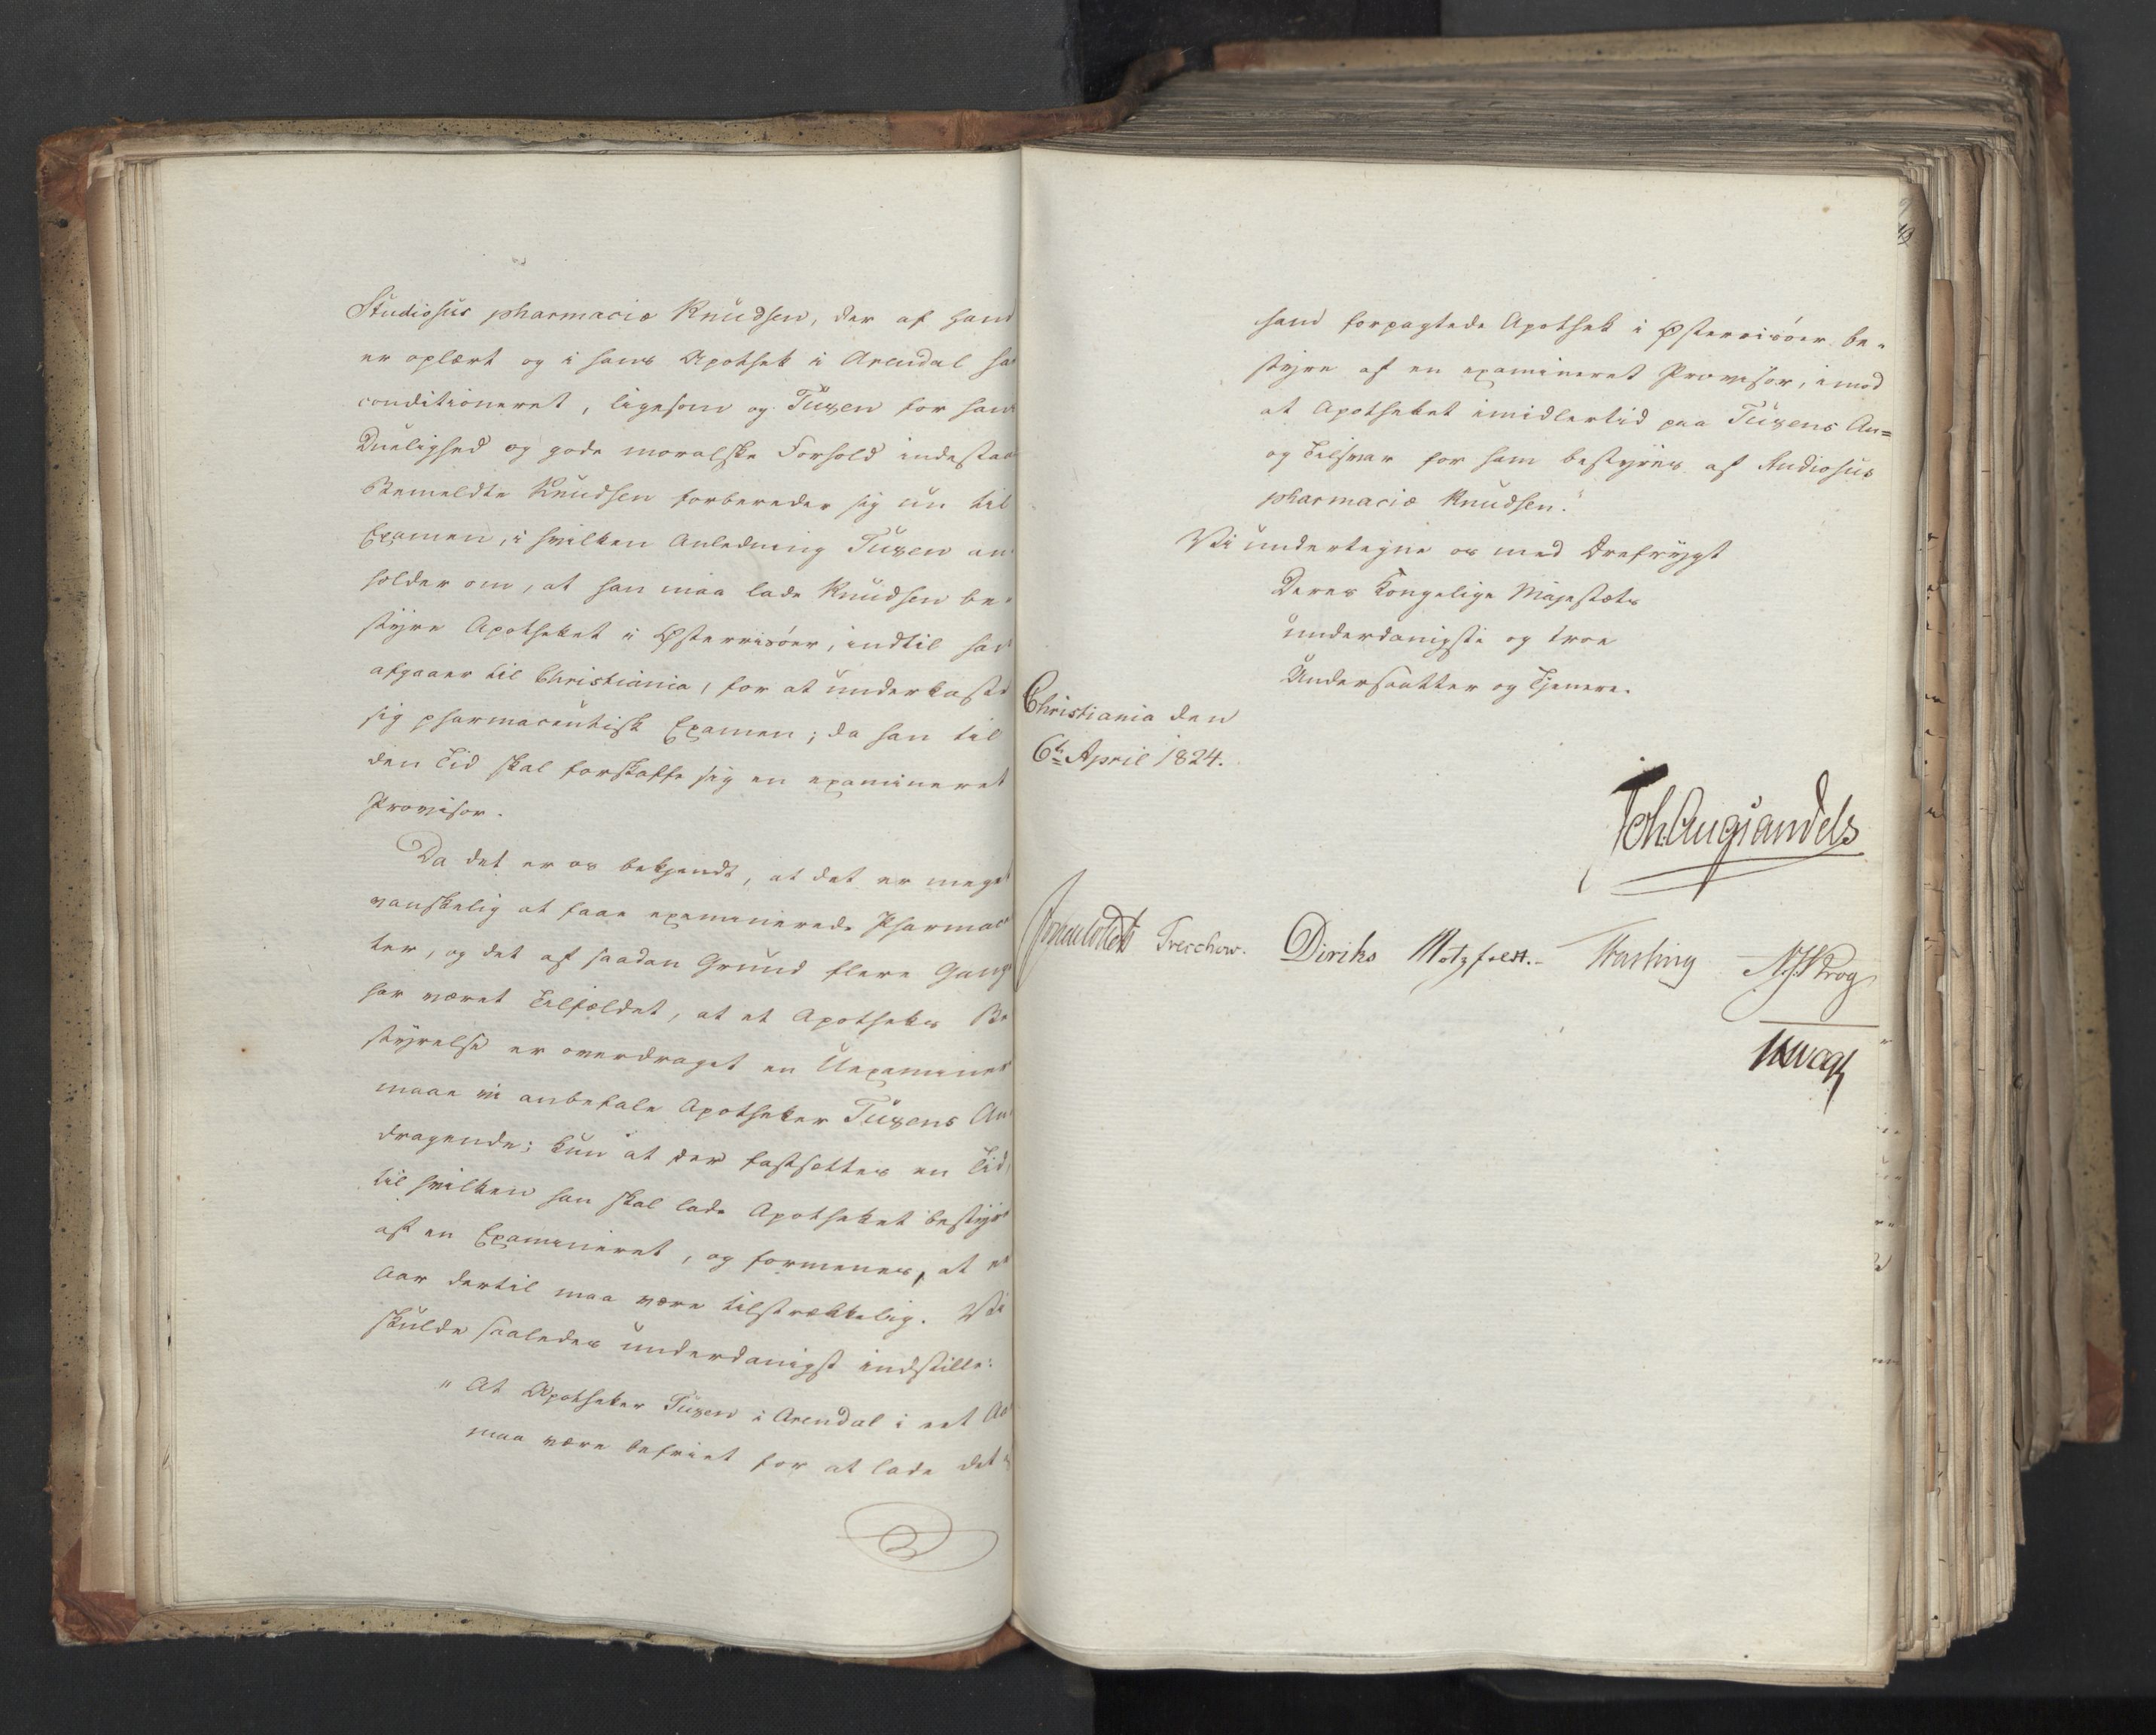 Studiosus pharmaciæ Knudsen, der af ham
er oplært og i hans Apothek i Arendal har
conditioneret, ligesom og Tuxen for hans
Duelighed og gode moralske Forhold indestaaer
Bemeldte Knudsen forbereder sig nu til
Examen, i hvilken Anledning Tuxen an¬
holder om, at han maa lade Knudsen be¬
styre Apotheket i Østerrisöer, indtil han
afgaaer til Christiania, for at underkaste
sig pharmaceutisk Examen; da han til
den Tid skal forskaffe sig en examineret
Provisor.
Da det er os bekjendt, at det er meget
vanskelig at faae examinerede Pharmaceu
ter, og det af saadan Grund flere Gange
har været Tilfældet, at et Apotheks Be
styrelse er overdraget en Uexamineret
maae vi anbefale Apotheker Tuxens An
dragende; kun at der fastsættes en Tid,
til hvilken han skal lade Apotheket bestyre
af en Examineret, og formenes, at et
Aar dertil maa være tilstrækkelig. Vi
skulde saaledes underdanigst indstille:
"At Apotheker Tuxen i Arendal i eet Aar
maa være befriet for at lade det af
ham forpagtede Apothek i Østerrisöer be-
styre af en examineret Provisor, imod
at Apotheket imidlertid paa Tuxens An=
og Tilsvar for ham bestyres af Studiosus
pharmaciæ Knudsen."
Vi undertegne os med Ærefrygt
Deres Kongelige Majestæts
underdanigste og troe
Undersaatter og Tjenere.
Christiania den
6te April 1824.
Joh. Aug Sandels
Sommerhielm Treschow. Diriks Motzfeldt.- Fasting N J Krog